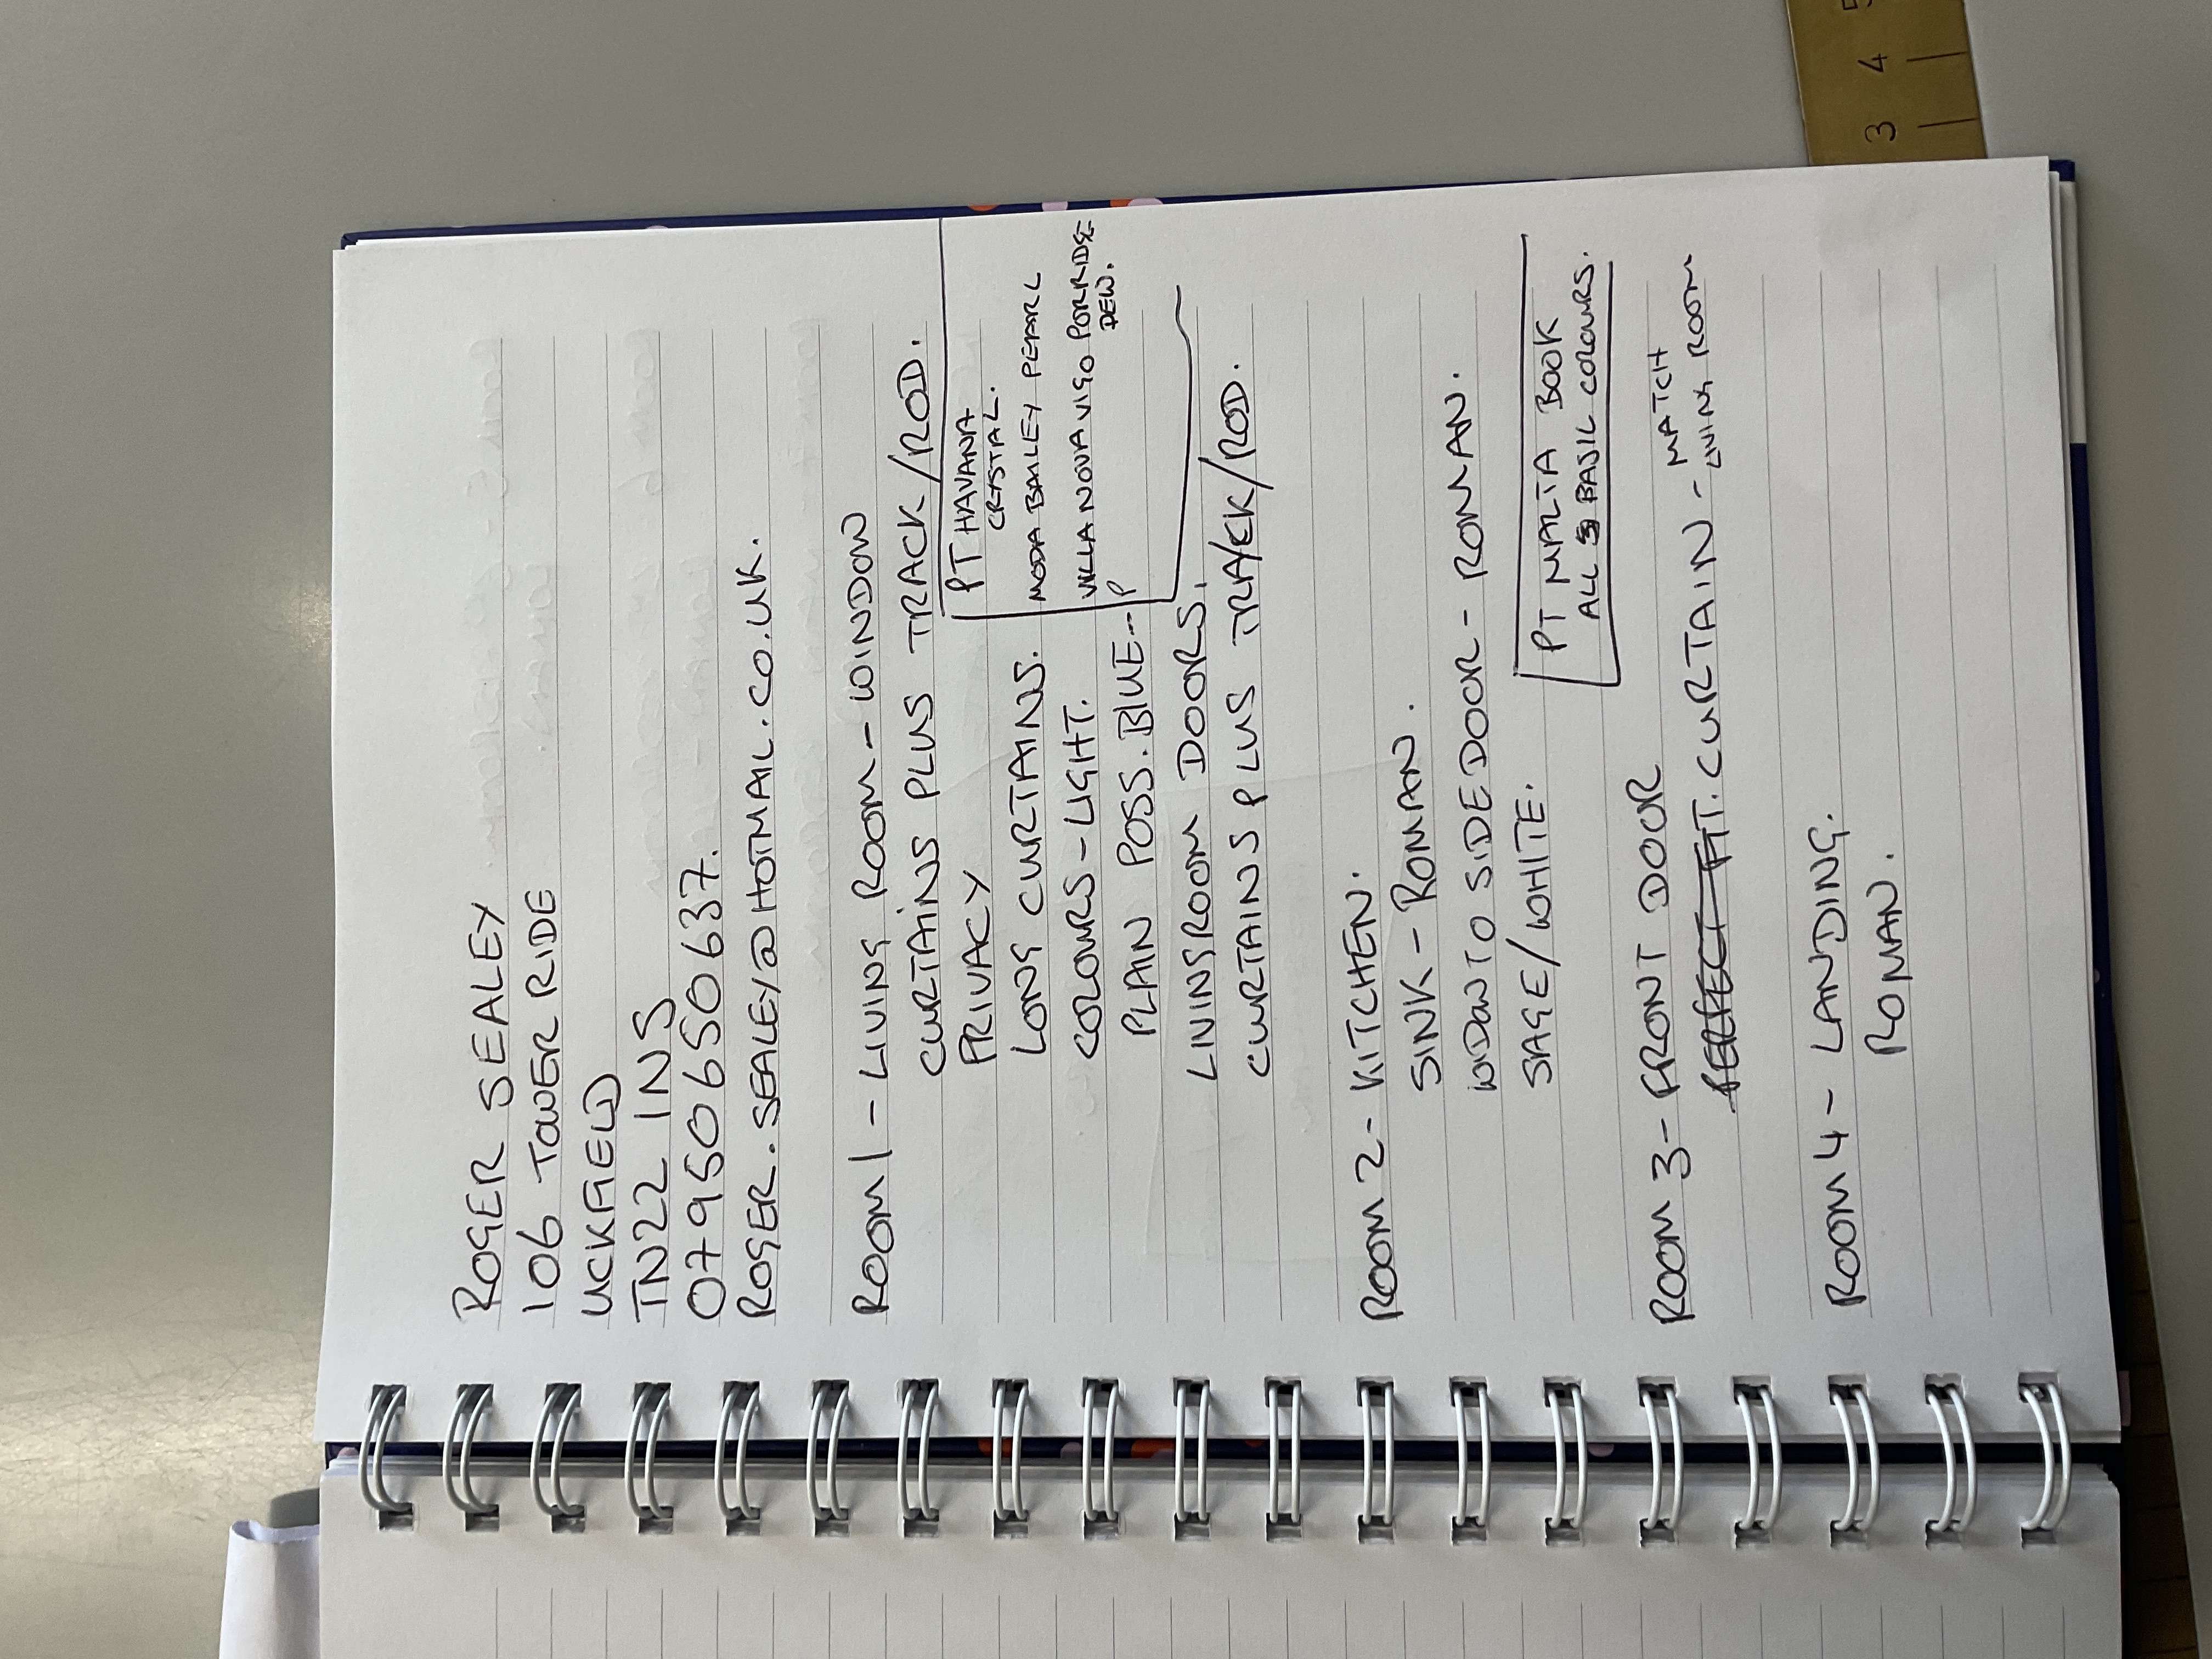 ROGER SEALEY
106 TOWER RIDE
UCKFIELD
TN22 1NS
07950650637.
ROGER.SEALEY@HOTMAIL.CO.UK.
ROOM 1 - LIVING ROOM - WINDOW
CURTAINS PLUS TRACK/ROD.
PRIVACY
LONG CURTAINS.
COLOURS - LIGHT.
PLAIN POSS. BLUE -- P
PT HAVANA
CRYSTAL.
MODA BAILEY PEARL
VILLA NOVA VIGO PORRIDGE
DEW.
LIVINGROOM DOORS.
CURTAINS PLUS TRACK/ROD.
ROOM 2 - KITCHEN.
SINK - ROMAN.
WDOW TO SIDE DOOR - ROMAN.
SAGE/WHITE.
PT MALTA BOOK
ALL 3 BASIL COLOURS.
ROOM 3 - FRONT DOOR
PERFECT FIT. CURTAIN - MATCH
LIVING ROOM
ROOM 4 - LANDING.
ROMAN.
3 4 5